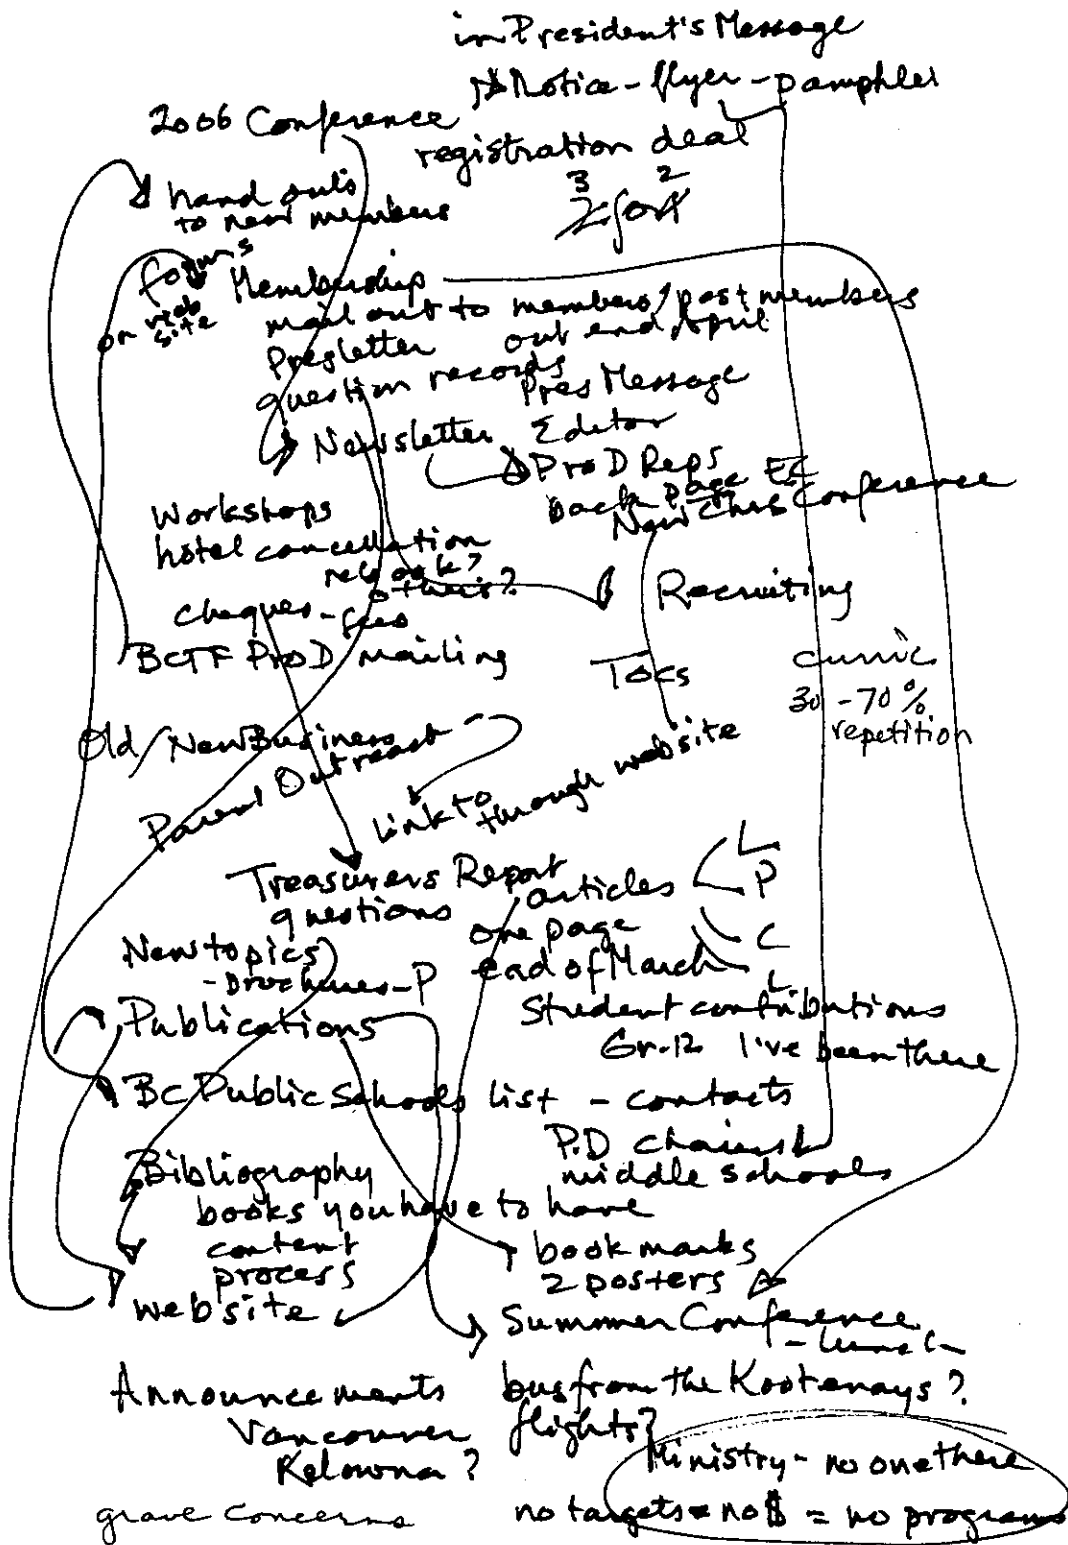 in President's Message
Notice - flyer - pamphlet
2006 Conference
registration deal
3 2
2 for 1
hand outs
to new members
forms
on web
site
Membership
mail out to members/past members
Presletter out end April
question records
Pres Message
Newsletter Editor
ProD Reps
back page EC
New Ches Conference
Workshops
hotel cancellation
rebook?
others?
Recruiting
cheques - fees
BCTF ProD mailing
TOCs
curric
30 - 70 %
repetition
Old/New Business
Parent Outreach
link to
through website
Treasurers Report
questions
articles L
P
one page
end of March C
L
New topics
- Brochures - P
Publications
Student contributions
Gr. 12 I've been there
BC Public Schools list - contacts
P.D chairs
middle schools
Bibliography
books you have to have
content
process
book marks
2 posters
website
Summer Conference
- lunch
Announcements
bus from the Kootenays?
flights?
Vancouver
Kelowna?
Ministry - no one there
grave concerns
no targets = no $ = no programs